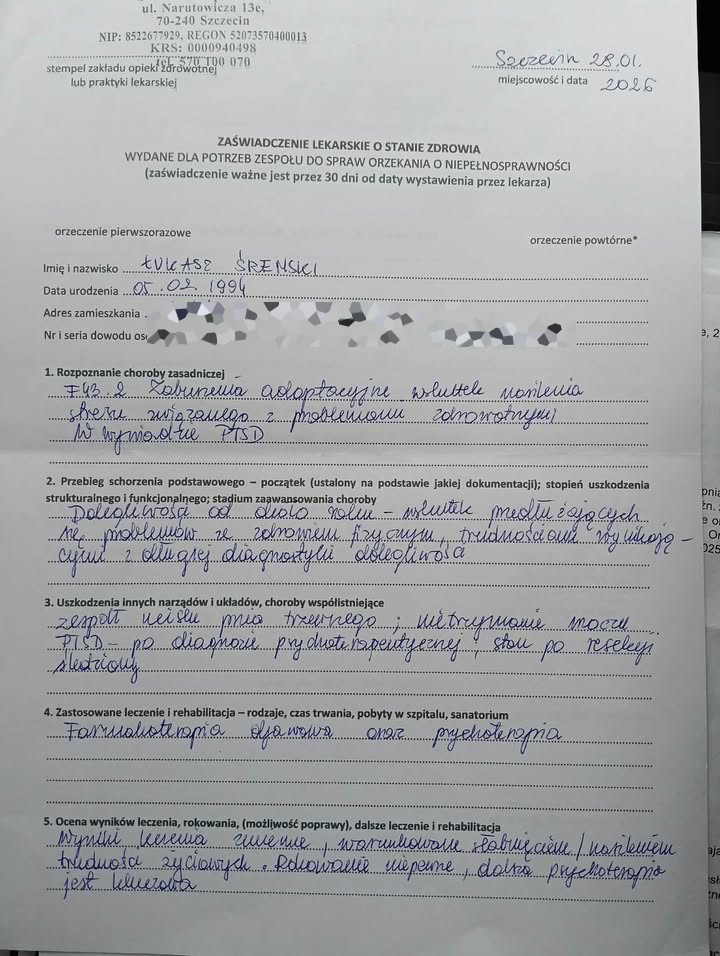 ul. Narutowicza 13e,
70-240 Szczecin
NIP: 8522677929, REGON 52073570400013
KRS: 0000940498
tel. 570 100 070
stempel zakładu opieki zdrowotnej
lub praktyki lekarskiej
Szczecin 28.01.
miejscowość i data
2026
ZAŚWIADCZENIE LEKARSKIE O STANIE ZDROWIA
WYDANE DLA POTRZEB ZESPOŁU DO SPRAW ORZEKANIA O NIEPEŁNOSPRAWNOŚCI
(zaświadczenie ważne jest przez 30 dni od daty wystawienia przez lekarza)
orzeczenie pierwszorazowe
orzeczenie powtórne*
Imię i nazwisko ŁUKASZ ŚREMSKI
Data urodzenia 05.02.1994
Adres zamieszkania
Nr i seria dowodu
1. Rozpoznanie choroby zasadniczej
F43.2 Zaburzenia adaptacyjne wskutek nasilenia
stresu związanego z problemami zdrowotnymi
W wywiadzie PTSD
2. Przebieg schorzenia podstawowego – początek (ustalony na podstawie jakiej dokumentacji); stopień uszkodzenia
strukturalnego i funkcjonalnego; stadium zaawansowania choroby
Dolegliwości od około roku – wskutek przedłużających
się problemów ze zdrowiem fizycznym, trudnościami wynikają-
cymi z długiej diagnostyki dolegliwości
3. Uszkodzenia innych narządów i układów, choroby współistniejące
zespół ucisku pnia trzewnego; nietrzymanie moczu
PTSD – po diagnozie psychoterapeutycznej; stan po resekcji
śledziony
4. Zastosowane leczenie i rehabilitacja – rodzaje, czas trwania, pobyty w szpitalu, sanatorium
Farmakoterapia objawowa oraz psychoterapia
5. Ocena wyników leczenia, rokowania, (możliwość poprawy), dalsze leczenie i rehabilitacja
Wyniki leczenia zmienne, warunkowane słabnięciem / nasileniem
trudności życiowych. Rokowanie niepewne, dalsza psychoterapia
jest